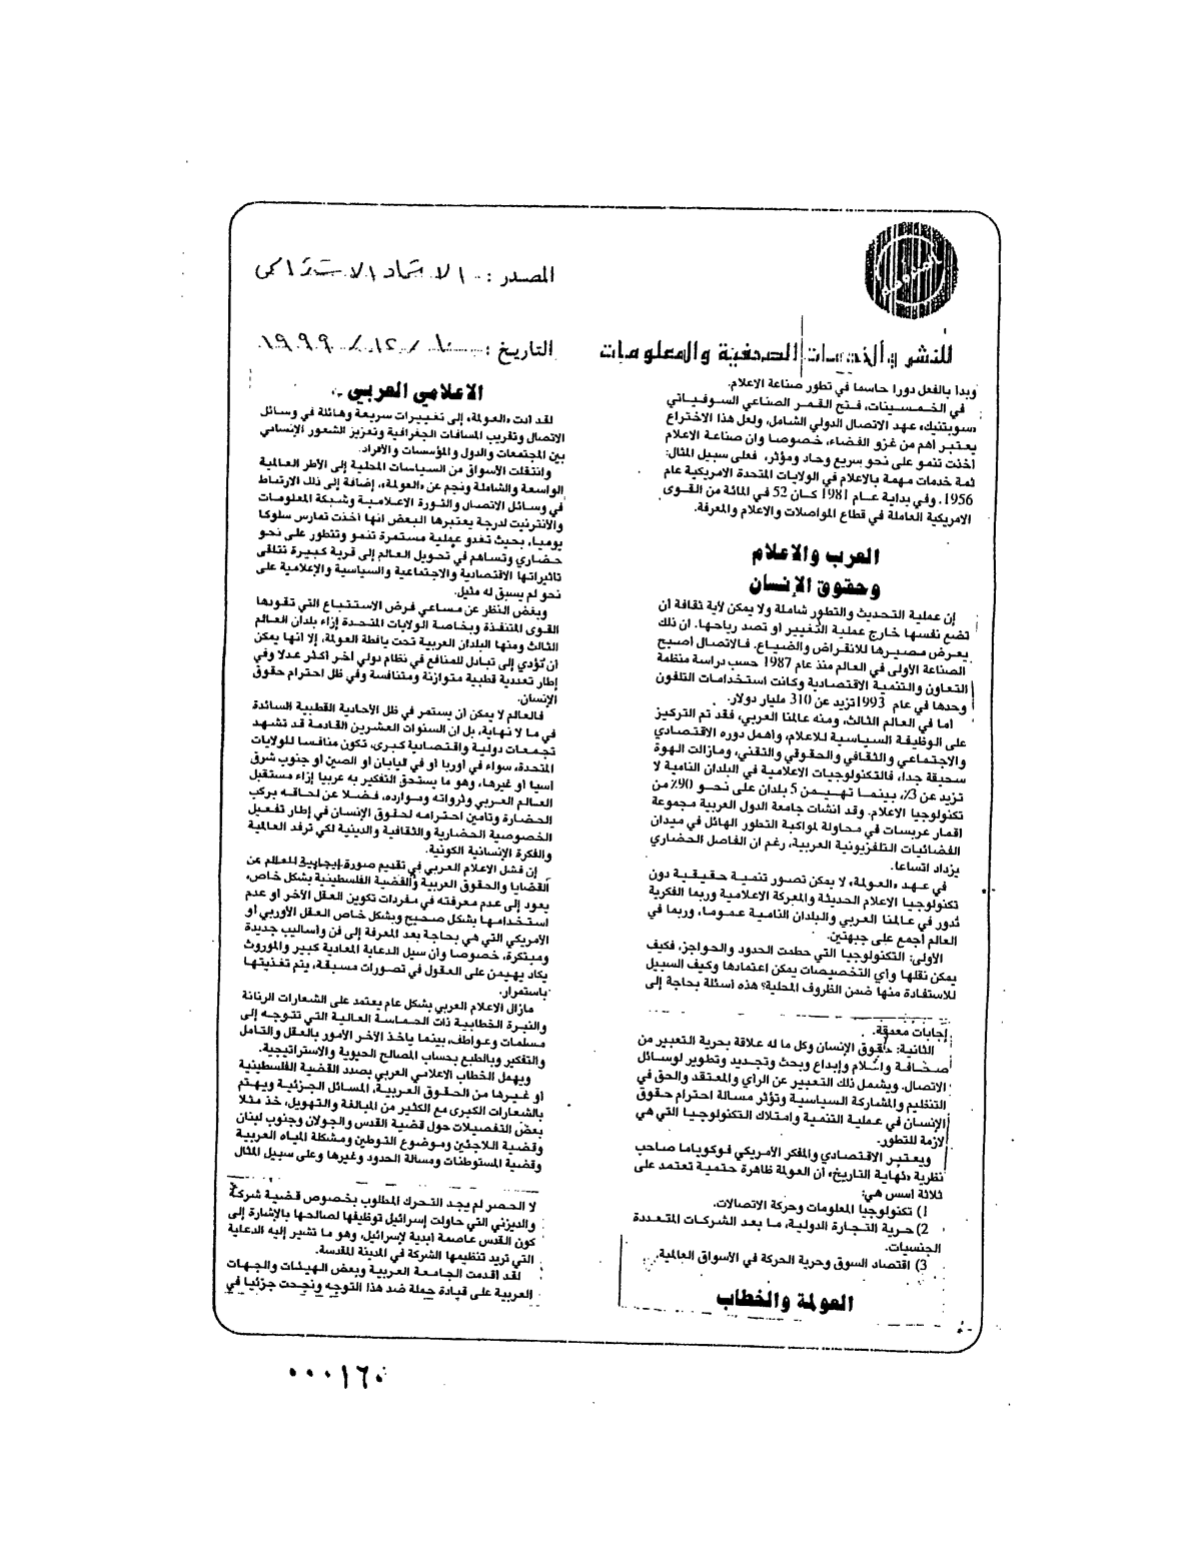 المصدر : الاتحاد الاشتراكي
للنشر والخدمات الصحفية والمعلومات
التاريخ : ١٠ / ١٢ / ١٩٩٩
وبدا بالفعل دورا حاسما في تطور صناعة الاعلام.
في الخمسينات، فتح القمر الصناعي السوفياتي
«سوبتنيك» عهد الاتصال الدولي الشامل، ولعل هذا الاختراع
يعتبر أهم من غزو الفضاء، خصوصا وان صناعة الاعلام
اخذت تنمو على نحو سريع وحاد ومؤثر، فعلى سبيل المثال:
ثمة خدمات مهمة بالاعلام في الولايات المتحدة الامريكية عام
1956. وفي بداية عام 1981 كان 52 في المائة من القوى
الامريكية العاملة في قطاع المواصلات والاعلام والمعرفة.
العرب والاعلام
وحقوق الإنسان
إن عملية التحديث والتطور شاملة ولا يمكن لأية ثقافة أن
تضع نفسها خارج عملية التغيير او تصد رياحها. ان ذلك
يعرض مصيرها للانقراض والضياع. فالاتصال اصبح
الصناعة الأولى في العالم منذ عام 1987 حسب دراسة منظمة
التعاون والتنمية الاقتصادية وكانت استخدامات التلفون
وحدها في عام 1993 تزيد عن 310 مليار دولار.
اما في العالم الثالث، ومنه عالمنا العربي، فقد تم التركيز
على الوظيفة السياسية للاعلام، وأهمل دوره الاقتصادي
والاجتماعي والثقافي والحقوقي والتقني، ومازالت الهوة
سحيقة جدا، فالتكنولوجيات الاعلامية في البلدان النامية لا
تزيد عن 3٪، بينما تهيمن 5 بلدان على نحو 90٪ من
تكنولوجيا الاعلام. وقد انشات جامعة الدول العربية مجموعة
اقمار عربسات في محاولة لمواكبة التطور الهائل في ميدان
الفضائيات التلفزيونية العربية، رغم ان الفاصل الحضاري
يزداد اتساعا.
في عهد «العولمة»، لا يمكن تصور تنمية حقيقية دون
تكنولوجيا الاعلام الحديثة والمعركة الاعلامية وربما الفكرية
تدور في عالمنا العربي والبلدان النامية عموما، وربما في
العالم اجمع على جبهتين.
الأولى: التكنولوجيا التي حطمت الحدود والحواجز، فكيف
يمكن نقلها واي التخصيصات يمكن اعتمادها وكيف السبيل
للاستفادة منها ضمن الظروف المحلية؟ هذه أسئلة بحاجة إلى
إجابات معمقة.
الثانية: حقوق الإنسان وكل ما له علاقة بحرية التعبير من
صحافة وإعلام وإبداع وبحث وتجديد وتطوير لوسائل
الاتصال. ويشمل ذلك التعبير عن الرأي والمعتقد والحق في
التنظيم والمشاركة السياسية وتؤثر مسالة احترام حقوق
الإنسان في عملية التنمية وامتلاك التكنولوجيا التي هي
لازمة للتطور.
ويعتبر الاقتصادي والمفكر الأمريكي فوكوياما صاحب
نظرية «نهاية التاريخ» أن العولمة ظاهرة حتمية تعتمد على
ثلاثة اسس هي:
1) تكنولوجيا المعلومات وحركة الاتصالات.
2) حرية التجارة الدولية، ما بعد الشركات المتعددة
الجنسيات.
3) اقتصاد السوق وحرية الحركة في الأسواق العالمية.
العولمة والخطاب
الاعلامي العربي
لقد ادت «العولمة» إلى تغييرات سريعة وهائلة في وسائل
الاتصال وتقريب المسافات الجغرافية وتعزيز الشعور الإنساني
بين المجتمعات والدول والمؤسسات والأفراد.
وانتقلت الأسواق من السياسات المحلية إلى الأطر العالمية
الواسعة والشاملة ونجم عن «العولمة»، إضافة إلى ذلك الارتباط
في وسائل الاتصال والثورة الاعلامية وشبكة المعلومات
والأنترنيت لدرجة يعتبرها البعض انها اخذت تمارس سلوكا
يوميا، بحيث تغدو عملية مستمرة تنمو وتتطور على نحو
حضاري وتساهم في تحويل العالم إلى قرية كبيرة تتلقى
تاثيراتها الاقتصادية والاجتماعية والسياسية والإعلامية على
نحو لم يسبق له مثيل.
وبغض النظر عن مساعي فرض الاستتباع التي تقودها
القوى المتنفذة وبخاصة الولايات المتحدة إزاء بلدان العالم
الثالث ومنها البلدان العربية تحت يافطة العولمة، إلا انها يمكن
ان تؤدي إلى تبادل للمنافع في نظام دولي آخر أكثر عدلا وفي
إطار تعددية قطبية متوازنة ومتنافسة وفي ظل احترام حقوق
الإنسان.
فالعالم لا يمكن أن يستمر في ظل الأحادية القطبية السائدة
في ما لا نهاية، بل ان السنوات العشرين القادمة قد تشهد
تجمعات دولية واقتصادية كبرى، تكون منافسا للولايات
المتحدة، سواء في أوربا أو في اليابان او الصين او جنوب شرق
اسيا او غيرها، وهو ما يستحق التفكير به عربيا إزاء مستقبل
العالم العربي وثرواته وموارده، فضلا عن لحاقه بركب
الحضارة وتامين احترامه لحقوق الإنسان في إطار تفعيل
الخصوصية الحضارية والثقافية والدينية لكي ترفد العالمية
والفكرة الإنسانية الكونية.
إن فشل الاعلام العربي في تقديم صورة إيجابية للعالم عن
القضايا والحقوق العربية والقضية الفلسطينية بشكل خاص،
يعود إلى عدم معرفته في مفردات تكوين العقل الآخر او عدم
استخدامها بشكل صحيح وبشكل خاص العقل الأوربي أو
الأمريكي التي هي بحاجة بعد المعرفة إلى فن وأساليب جديدة
ومبتكرة، خصوصا وأن سيل الدعاية المعادية كبير والموروث
يكاد يهيمن على العقول في تصورات مسبقة، يتم تغذيتها
باستمرار.
مازال الاعلام العربي بشكل عام يعتمد على الشعارات الرنانة
والنبرة الخطابية ذات الحماسة العالية التي تتوجه إلى
مسلمات وعواطف، بينما ياخذ الآخر الأمور بالعقل والتامل
والتفكير وبالطبع بحساب المصالح الحيوية والاستراتيجية.
ويهمل الخطاب الاعلامي العربي بصدد القضية الفلسطينية
او غيرها من الحقوق العربية، المسائل الجزئية ويهتم
بالشعارات الكبرى مع الكثير من المبالغة والتهويل، خذ مثلا
بعض التفصيلات حول قضية القدس والجولان وجنوب لبنان
وقضية اللاجئين وموضوع التوطين ومشكلة المياه العربية
وقضية المستوطنات ومسالة الحدود وغيرها وعلى سبيل المثال
لا الحصر لم يجد التحرك المطلوب بخصوص قضية شركة
والديزني التي حاولت إسرائيل توظيفها لصالحها بالإشارة إلى
كون القدس عاصمة ابدية لإسرائيل، وهو ما تشير إليه الدعاية
التي تريد تنظيمها الشركة في المدينة المقدسة.
لقد اقدمت الجامعة العربية وبعض الهيئات والجهات
العربية على قيادة حملة ضد هذا التوجه ونجحت جزئيا في
٠٠٠١٦٠